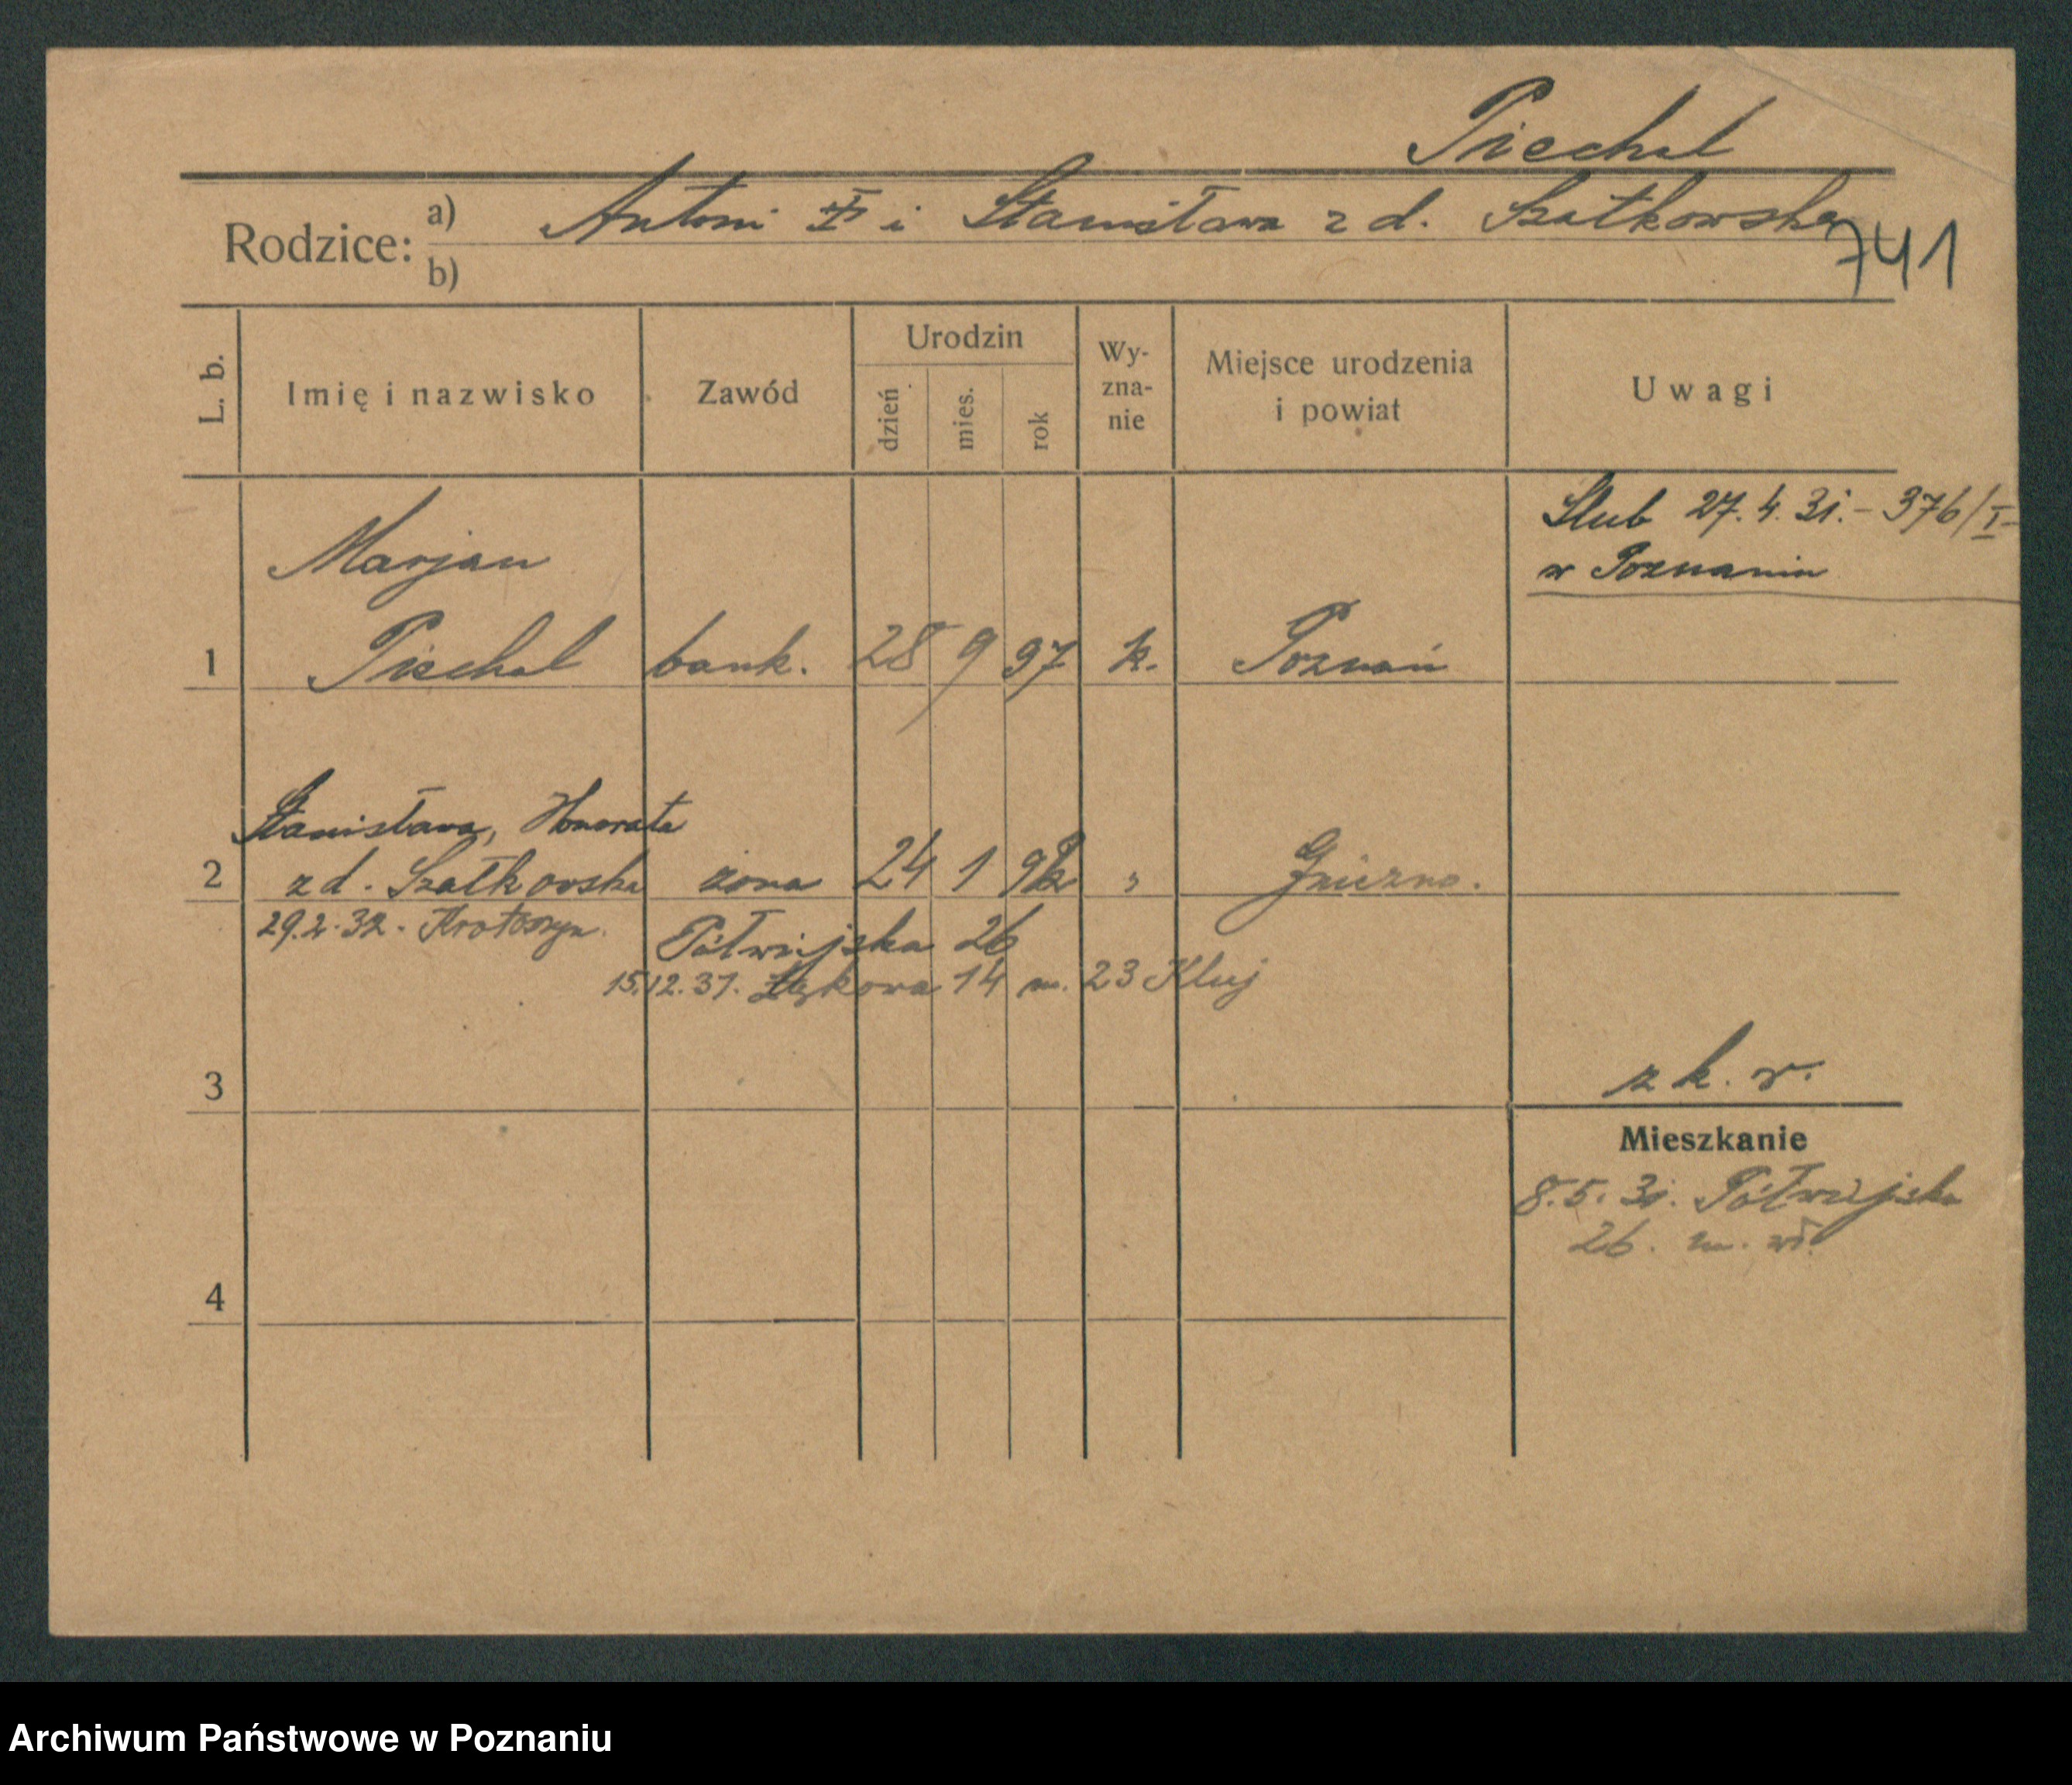 Piechel
Rodzice: a) Antoni i Stanisława z d. Szatkowska
b)
741
L. b.
Imię i nazwisko
Zawód
Urodzin
dzień
mies.
rok
Wy-
zna-
nie
Miejsce urodzenia
i powiat
Uwagi
Slub 27.4.31.- 376/I-
w Poznaniu
Marjan
1 Piechel bank. 28 9 97 k. Poznań
Stanisława, Honorata
2 z d. Szatkowska żona 24 1 Gniezno.
29.2.32. Krotoszyn.
Półwiejska 26
15.12.31. Łąkowa 14 m. 23 Kluj
3
z k. r.
Mieszkanie
8.5.31. Półwiejska
26. m.
4
Archiwum Państwowe w Poznaniu